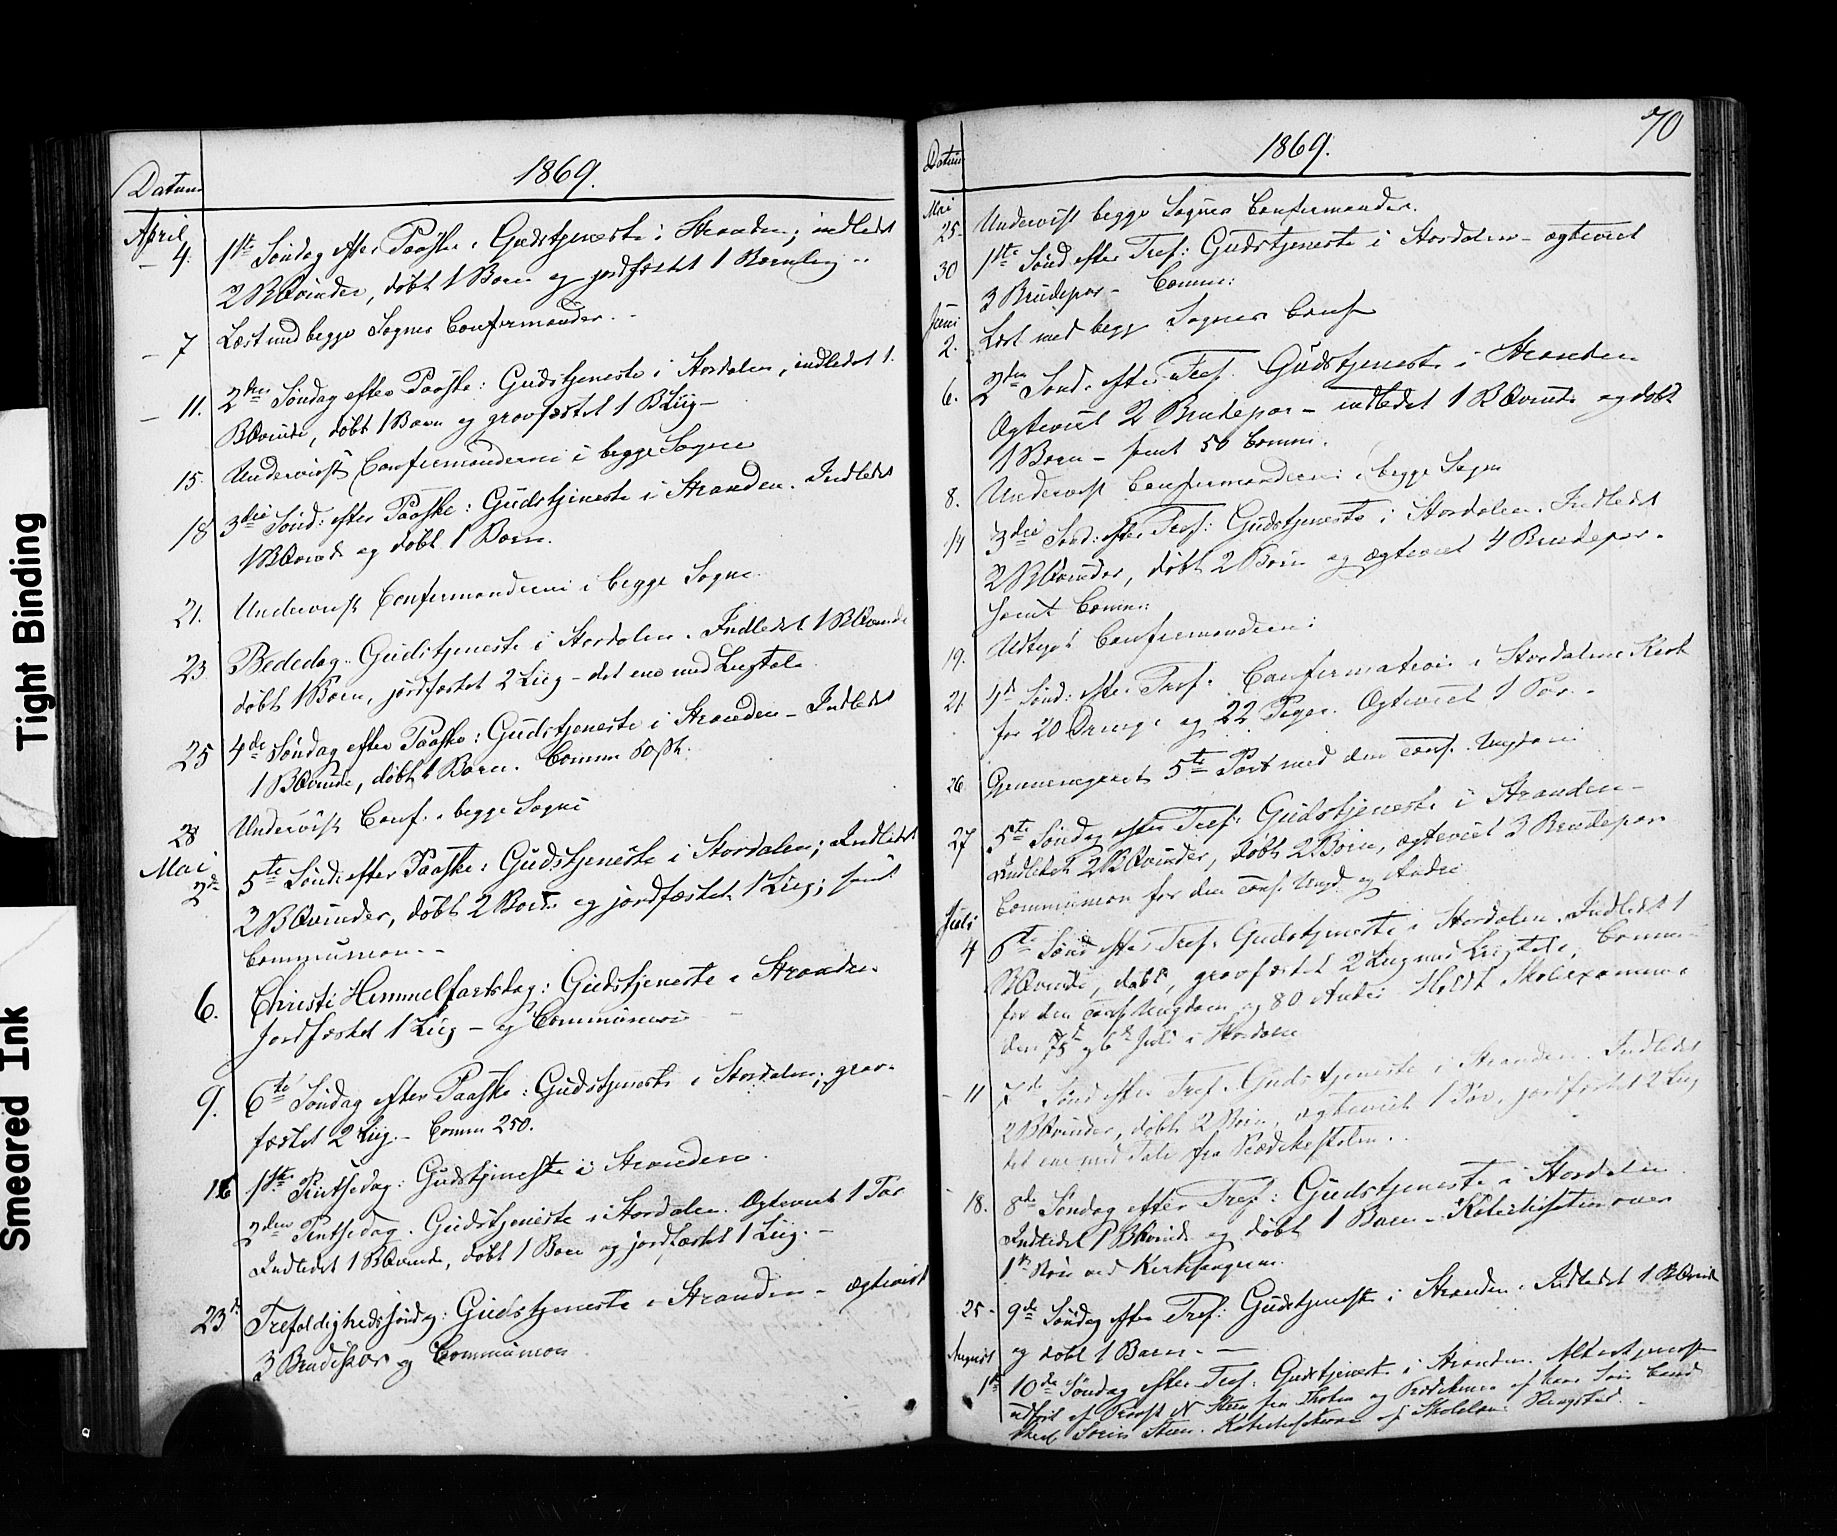 Tight Binding
Smeared Ink
Datum
1869.
April
4. 1ste Søndag efter Paaske: Gudstjeneste i Stranden; indledet
2 BKvinder, døbt 1 Barn og jordfæstet 1 Barnelig
7 Læst med begge Sognes Confirmander.
11. 2den Søndag efter Paaske: Gudstjeneste i Stordalen, indledet 1
BKvinde, døbt 1 Barn og gravfæstet 1 BLiig
15. Underviist Confirmanderne i begge Sogne
18 3die Sønd: efter Paaske: Gudstjeneste i Stranden. Indledet
1 BKvinde og døbt 1 Barn.
21. Underviist Confirmanderne i begge Sogne.
23 Bededag. Gudstjeneste i Stordalen. Indledet 1 BKvinde
døbt 1 Barn, jordfæstet 2 Liig - det ene med Liigtale
25 4de Søndag efter Paaske: Gudstjeneste i Stranden - Indledet
1 BKvinde, døbt 1 Barn. Commu
28 Underviist Conf. i begge Sogne
Mai
2de 5te Sønd: efter Paaske: Gudstjeneste i Stordalen; Indledet
2 BKvinder, døbt 2 Børn og jordfæstet 1 Liig; samt
Communion -
6. Christi Himmelfartsdag: Gudstjeneste i Stranden
Jordfæstet 1 Liig - og Communion
9. 6te Søndag efter Paaske: Gudstjeneste i Stordalen; grav-
fæstet 2 Liig. - Commu 250.
16 1ste Pintsedag: Gudstjeneste i Stranden.
2den Pintsedag. Gudstjeneste i Stordalen. Ægteviet 1 Par
Indledet 1 BKvinde, døbt 1 Barn og jordfæstet 1 Liig. -
23de Trefoldighedssøndag: Gudstjeneste i Stranden - ægteviet
3 Brudepar og Communion
70
Datum
1869.
Mai
25. Underviist begge Sognes Confirmander.
30 1ste Sønd efter Tref: Gudstjeneste i Stordalen - ægteviet
3 Brudepar - Commu:
Juni
2. Læst med begge Sognes Conf
6. 2den Sønd. efter Tref. Gudstjeneste i Stranden
Ægteviet 2 Brudepar - indledet 1 BKvinde og døbt
1 Barn - samt 50 Commu.
8. Underviist Confirmanderne i begge Sogne
14 3die Sønd: efter Tref: Gudstjeneste i Stordalen. Indledet
2 BKvinder, døbt 2 Børn og ægteviet 4 Brudepar.
samt Commu:
19. Confirmanderne:
21 4de Sønd: efter Tref. Confirmation i Stordalens Kirke
for 20 Drenge og 22 Piger. Ægteviet 1 Par. -
26. Gjennemgaaet 5te Part med den conf. Ungdom.
27 5te Søndag efter Tref: Gudstjeneste i Stranden -
Indledet 2 BKvinder, døbt 2 Børn, ægteviet 3 Brudepar
Communion for den conf. Ungd. og Andre
Juli
4 6te Sønd efter Tref. Gudstjeneste i Stordalen. Indledet 1
BKvinde, døbt, gravfæstet 2 Liig med Liigtale, Commu-
for den conf. Ungdom og 80 Andre. Holdt Skoleexamen
den 5te og 6te Juli i Stordalen
11 7de Sønd efter Tref. Gudstjeneste i Stranden. Indledet
2 BKvinder, døbt 2 Børn, ægteviet 1 Par, jordfæstet 2 Liig
det ene med Tale fra Prædikestolen.
18. 8de Søndag efter Tref: Gudstjeneste i Stordalen
Indledet 1 BKvinde og døbt 1 Barn - Katechisation over
ved Kirkesangeren.
25 - 9de Søndag efter Tref: Gudstjeneste i Stranden. Indledet 1 BKvinde
og døbt 1 Barn. -
August
1ste 10de Søndag efter Tref: Gudstjeneste i Stranden. Altertjeneste
udført af Provst N Steen fra og Prædikenen af hans Søn Cand
theol Steen. Katechisation af Skolelærer Ringstad.